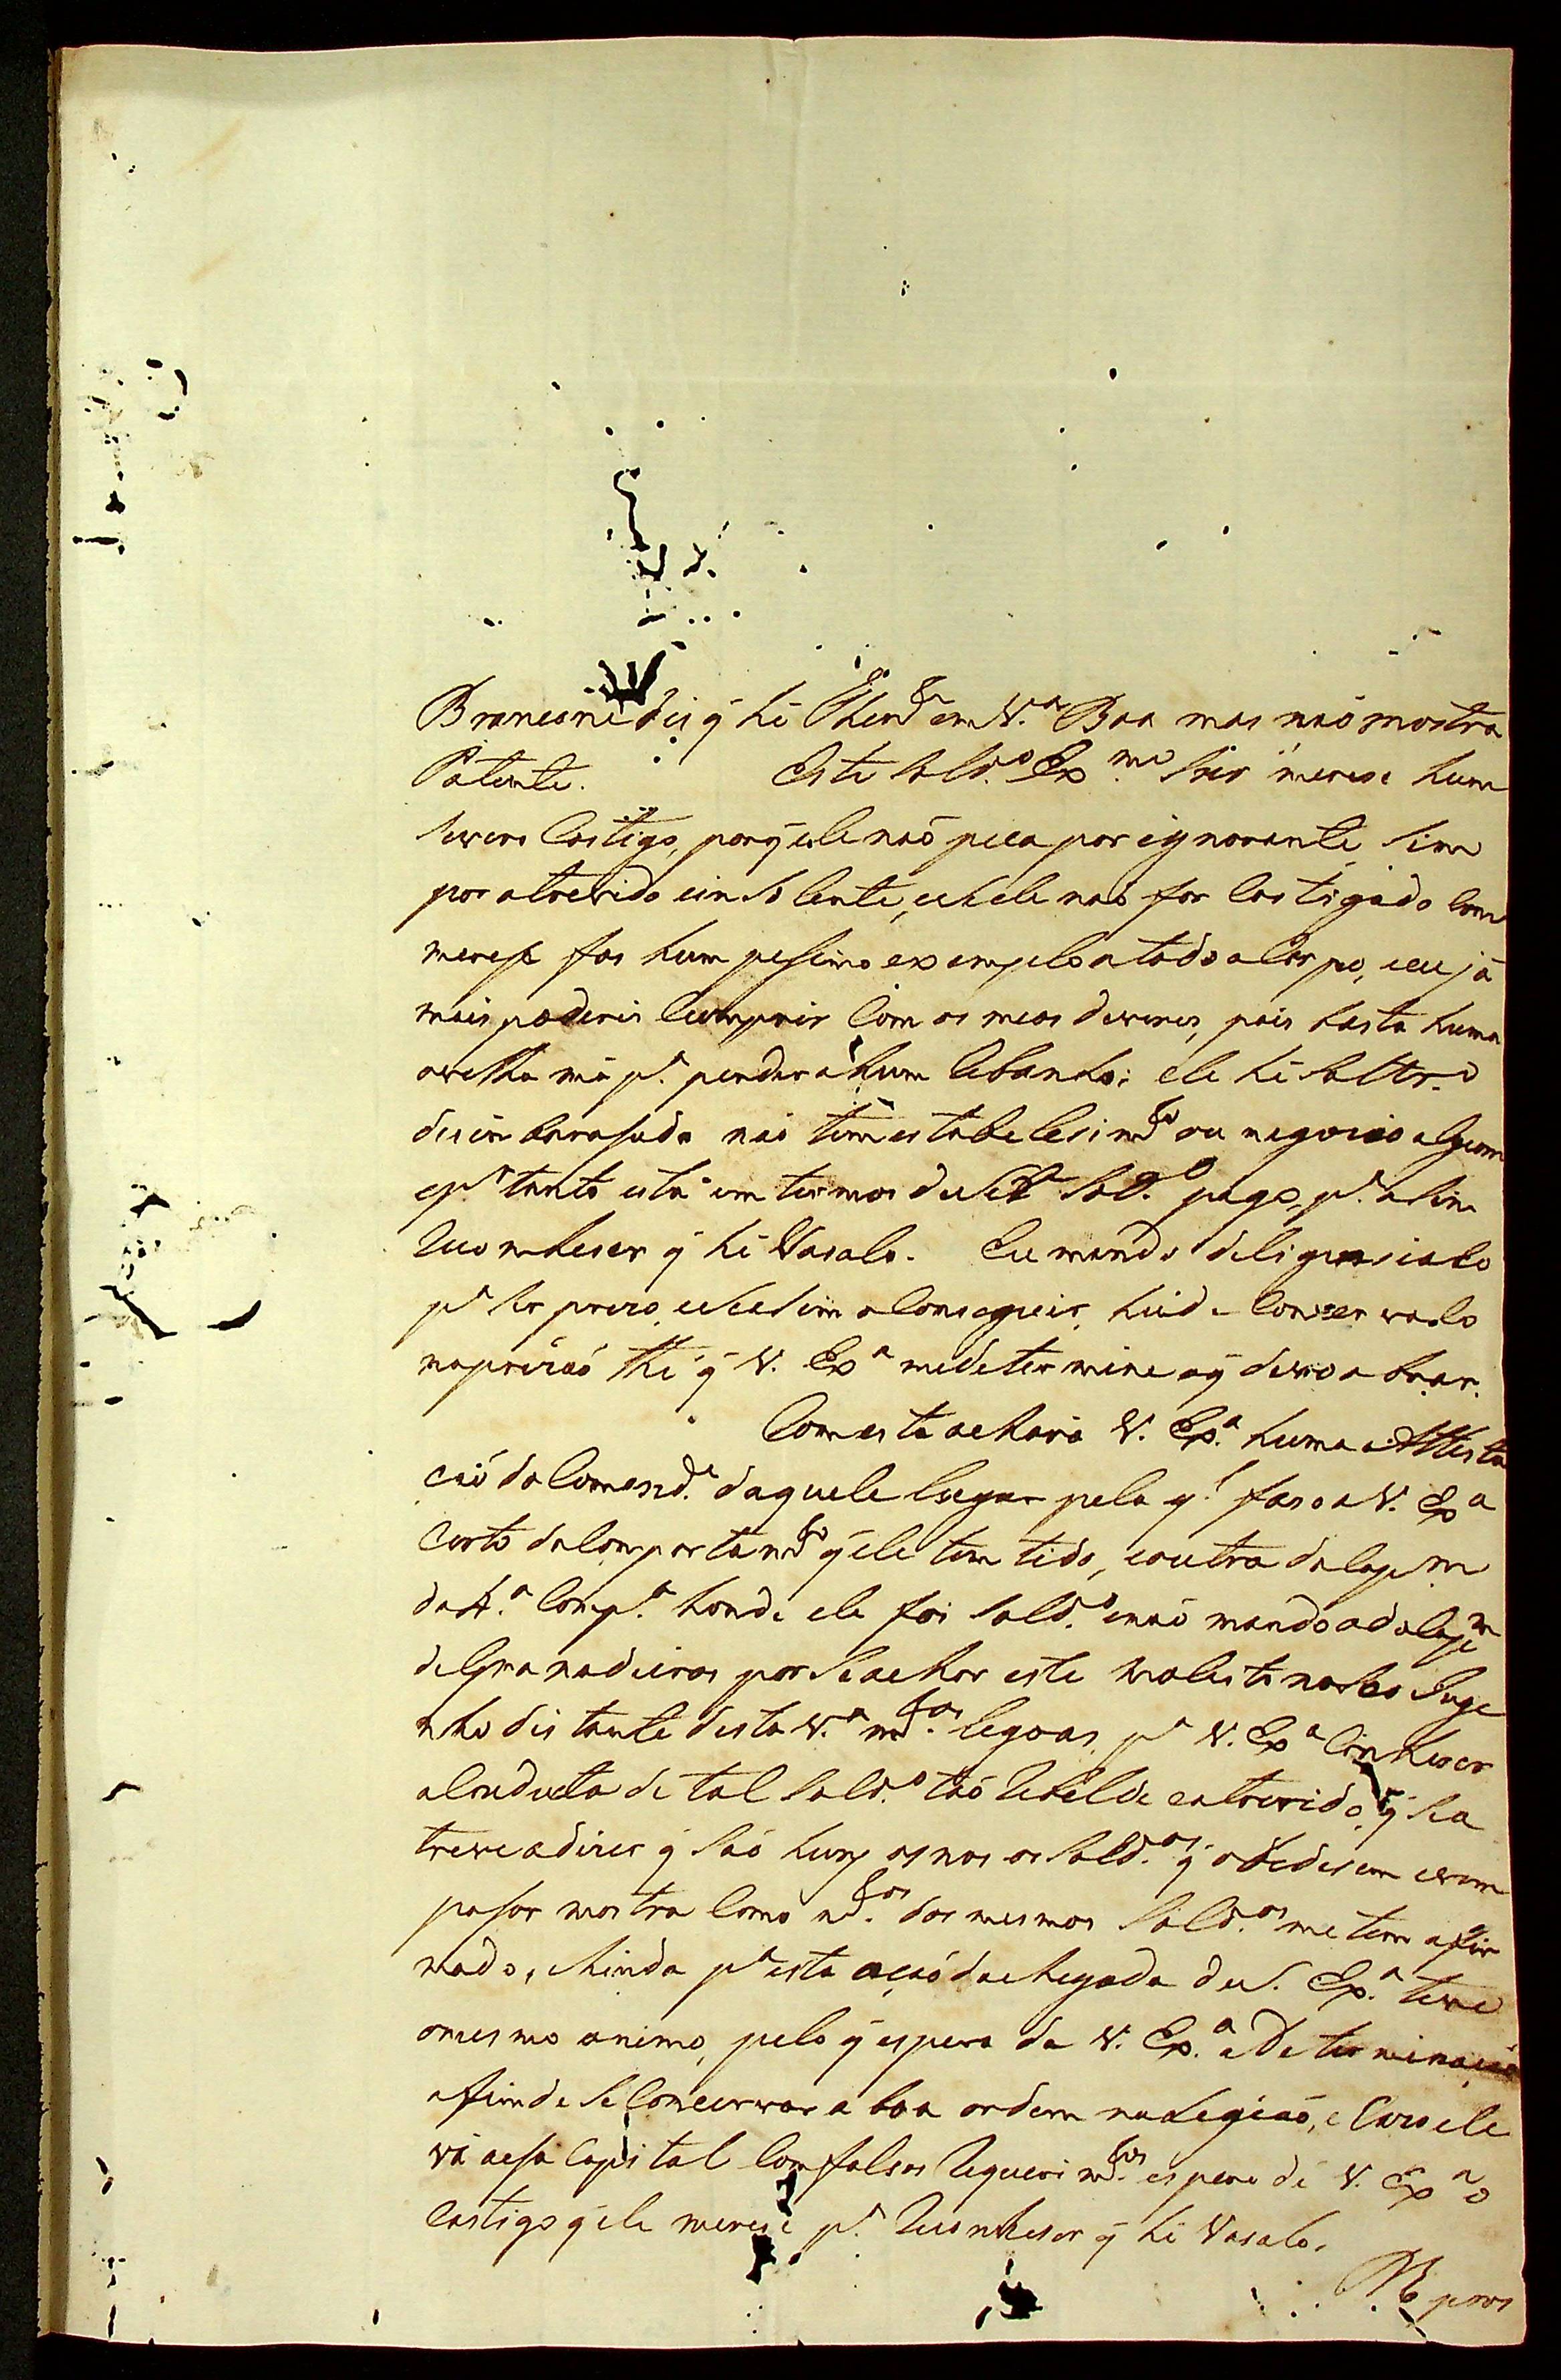 dis q̃ hé Then.te em V.a Boa mas naó mostra
Patente. Este Sold.o Ex.mo Snr' merese hum
severo Castigo, porq̃ ele naó peca por ignorante, sim
por atrevido e insolente, e se ele naó for Castigado Como
merese fas hum pessimo exemplo a todo a Corpo, e eu já
mais poderei Cumprir Com os meos deveres, pois basta huma
ovelha má p.a perder a hum Rebanho: ele hé Soltr.o
desinbarasado naó tem estabelesim.to ou negocio algum
e p.r tanto está em termos de Sold.o pago, p.a asim
Reconheser q̃ hé Vasalo. Eu mando deligensialo
p.a ser prezo, e se asim o Conseguir, héide Conservalo
na prizaó thé q̃ V. Ex.a me determine oq̃ devo obrar.
Com esta achará V. Ex.a huma Attesta
çaó do Comend.e daquele Lugar pela q.l faso a V. Ex.a
Certo do Comportam.to q̃ ele tem tido, e outra do Cap.m
da 4.a Comp.a honde ele foi Sold.o e naó mando a do Cap.m
de Granadeiros por se achar este molesto no seo Inge
nho distante desta V.a m.tas legoas, p.a V. Ex.a Conheser
a Conducta de tal Sold.o taó Rebelde e atrevido, q̃ se a
treve a dizer q̃ saó huns asnos os Sold.os q̃ obedesem e vem
pasar mostra Como m.tos dos mesmos Sold.os me tem afir
mado, e hinda p.a esta ocaó da chegada de V. Ex.a teve
o mesmo animo, pelo q̃ espero da V. Ex.a a Determinaçaó
afim de se Concervar a boa ordem na Legiaó, e Cazo ele
vá a esa Capital Com falsos Requerim.tos espero de V. Ex.a o
Castigo q̃ ele merese p.a Reconheser q̃ hé Vasalo.